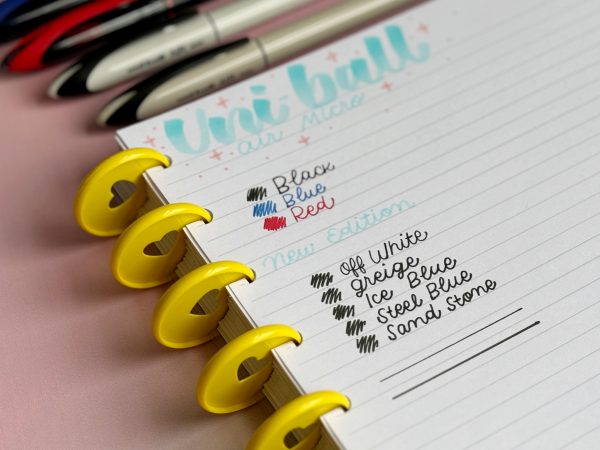 Uni ball
air micro
Black
Blue
Red
New Edition
Off White
greige
Ice Blue
Steel Blue
Sand Stone